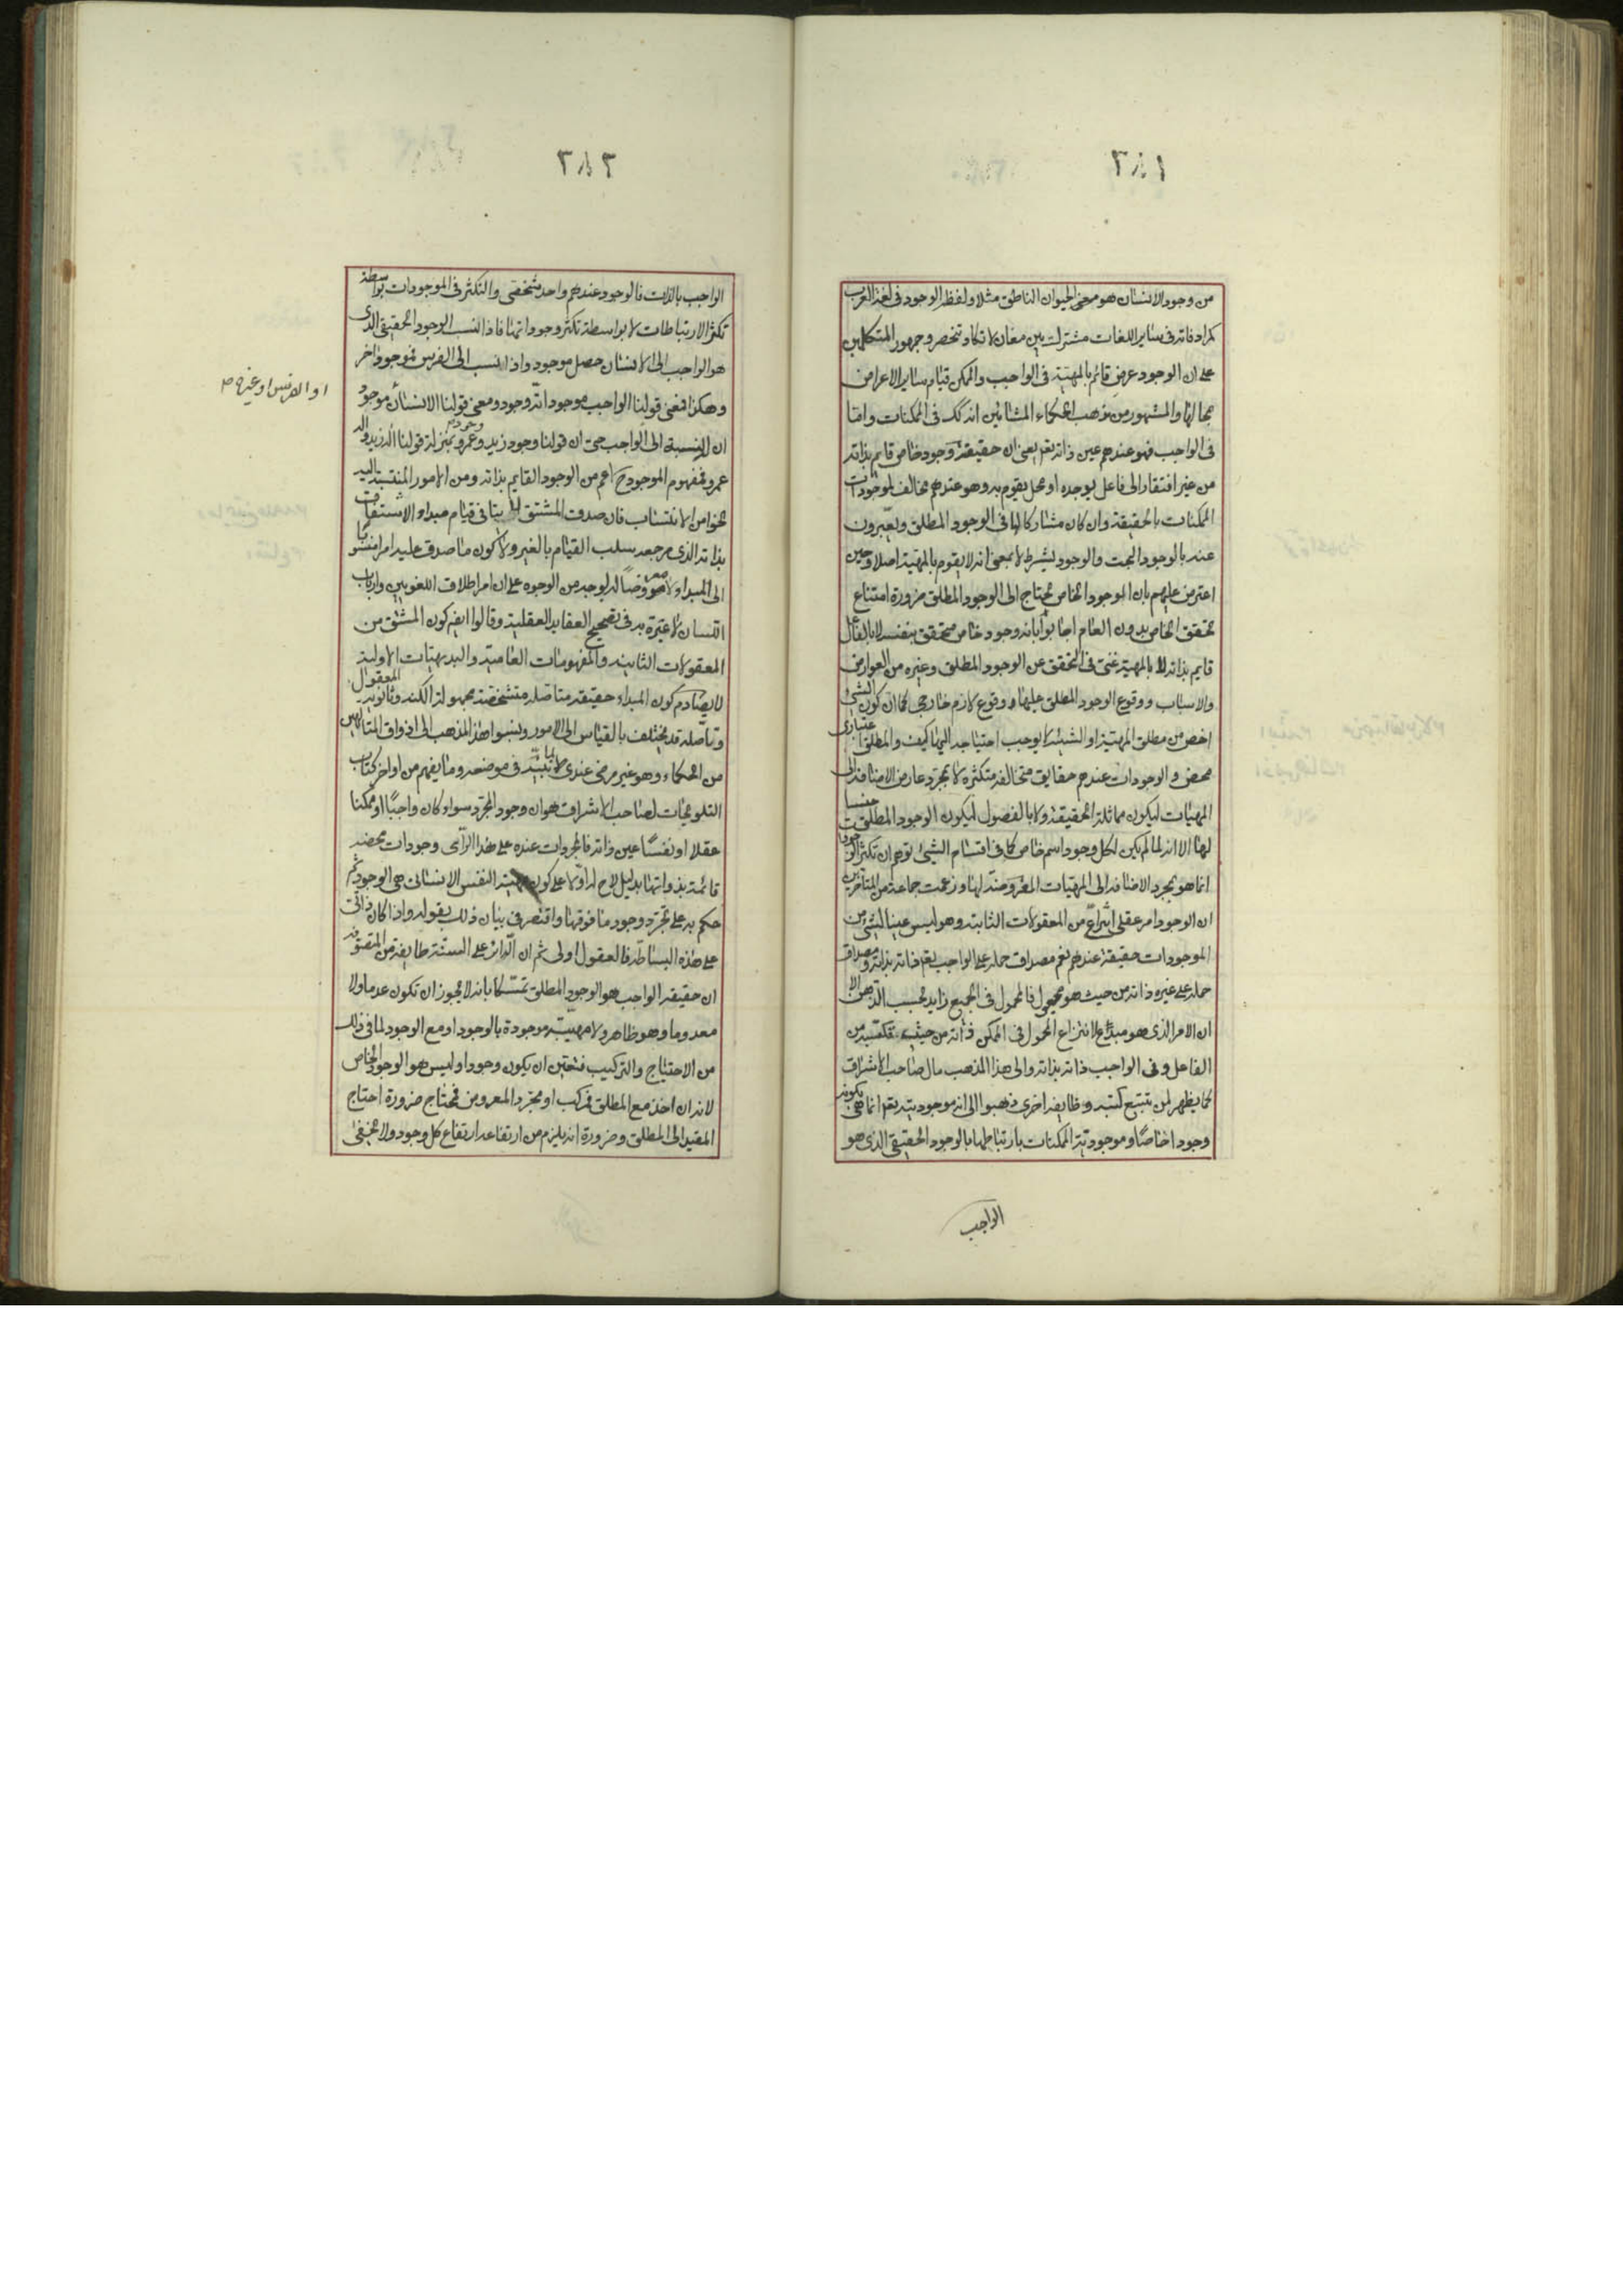 ٢٨١
من وجود الانسان هو معنى الحيوان الناطق مثلا ولفظ الوجود فى لغة العرب
كمرادفاته فى ساير اللغات مشترك بين معان لا تكاد تنحصر وجمهور المتكلمين
على ان الوجود عرض قائم بالمهية فى الواجب والممكن قيام ساير الاعراض
بمحالها والمشهور من مذهب الحكماء المشائين انه كك فى الممكنات واما
فى الواجب فهو عندهم عين ذاته تعم يعنى ان حقيقته وجود خاص قايم بذاته
من غير افتقار الى فاعل يوجده او محل يقوم به وهو عندهم مخالف لموجودات
الممكنات بالحقيقة وان كان مشاركا لها فى الوجود المطلق ويعبرون
عنه بالوجود البحت والوجود بشرط لا بمعنى انه لا يقوم بالمهية اصلا وحين
اعترض عليهم بان الموجود الخاص محتاج الى الوجود المطلق ضرورة امتناع
تحقق الخاص بدون العام اجابوا بانه وجود خاص متحقق بنفسه لا بالفاعل
قايم بذاته لا بالمهية غنى فى التحقق عن الوجود المطلق وغيره من العوارض
والاسباب ووقوع الوجود المطلق عليها وقوع لازم خارجى كما ان كون الشئ
اخص من مطلق المهية او الشيئية لا يوجب احتياجه اليها كيف والمطلق اعتبارى
محض والوجودات عندهم حقايق متخالفة متكثرة لا بمجرد عارض الاضافة الى
المهيات ليكون مماثلة الحقيقة ولا بالفصول ليكون الوجود المطلق جنسا
لها الا انه لما لم يكن لكل وجود اسم خاص كما فى اقسام الشئ توهم ان تكثر الوجودات
انما هو بمجرد الاضافة الى المهيات المعروضة لها وزعمت جماعة من المتأخرين
ان الوجود امر عقلى انتزاعى من المعقولات الثانية وهو ليس عينا لشئ من
الموجودات حقيقة عندهم نعم مصداق حمله على الواجب تعم ذاته بذاته ومصداق
حمله على غيره ذاته من حيث هو مجعول فالمحمول فى الجميع زايد بحسب الذهن الا
ان الامر الذى هو مبدأ لانتزاع المحمول فى الممكن ذاته من حيثية مكتسبة من
الفاعل وفى الواجب ذاته بذاته والى هذا المذهب مال صاحب الاشراق
كما يظهر لمن يتتبع كتبه وطايفة اخرى ذهبوا الى ان موجوديته تعم انما هى بكونه
وجودا خاصا وموجودية الممكنات بارتباطها بالوجود الحقيقى الذى هو
الواجب
٢٨٢
الواجب بالذات فالوجود عندهم واحد شخصى والتكثر فى الموجودات بواسطة
تكثر الارتباطات لا بواسطة تكثر وجوداتها فاذا نسب الوجود الحقيقى الذى
هو الواجب الى الانسان حصل موجود واذا نسب الى الفرس فموجود اخر
وهكذا فمعنى قولنا الواجب موجود انه وجود ومعنى قولنا الانسان موجود
او الفرس او غيره
ان له نسبة الى الواجب حتى ان قولنا وجود زيد ووجود عمرو بمنزلة قولنا اله زيد واله
عمرو فمفهوم الموجود ح اعم من الوجود القايم بذاته ومن الامور المنتسبة اليه
نحوا من الانتساب فان صدق المشتق لا ينافى قيام مبداء الاشتقاق
بذاته الذى مرجعه سلب القيام بالغير ولا كون ما صدق عليه امرا منسوبا
الى المبداء لا معروضا له لوجه من الوجوه على ان امر اطلاق اللغويين وارباب
اللسان لا عبرة به فى تصحيح العقايد العقلية وقالوا ايض كون المشتق من
المعقولات الثانية والمفهومات العامية والبديهيات الاولية
لا يصادم كون المبداء حقيقة متاصلة متشخصة مجهولة الكنه وثانوية المعقول
وتاصله قد يختلف بالقياس الى الامور ونسبوا هذا المذهب الى اذواق المتالهين
من الحكماء وهو غير مرضى عندى لما سيأتى فى موضعه وما يفهم من اواخر كتاب
التلويحات لصاحب الاشراق هو ان وجود المجرد سواء كان واجبا او ممكنا
عقلا او نفسا عين ذاته فالمجردات عنده على هذا الرأى وجودات محضة
قائمة بذواتها بدليل لاح له اولا على كون مهية النفس الانسانى هى الوجود ثم
حكم به على تجرد وجود ما فوقها واقتصر فى بيان ذلك بقوله واذا كان ذاتى
على هذه البساطة فالعقول اولى ثم ان الدائر على السنة طايفة من المتصوفة
ان حقيقة الواجب هو الوجود المطلق تمسكا بانه لا يجوز ان تكون عدما ولا
معدوما وهو ظاهر ولا مهية موجودة بالوجود او مع الوجود لما فى ذلك
من الاحتياج والتركيب فتعين ان يكون وجودا وليس هو الوجود الخاص
لانه ان اخذ مع المطلق فمركب او مجرد المعروض فمحتاج ضرورة احتياج
المقيد الى المطلق وضرورة انه يلزم من ارتفاعه ارتفاع كل وجود ولا يخفى